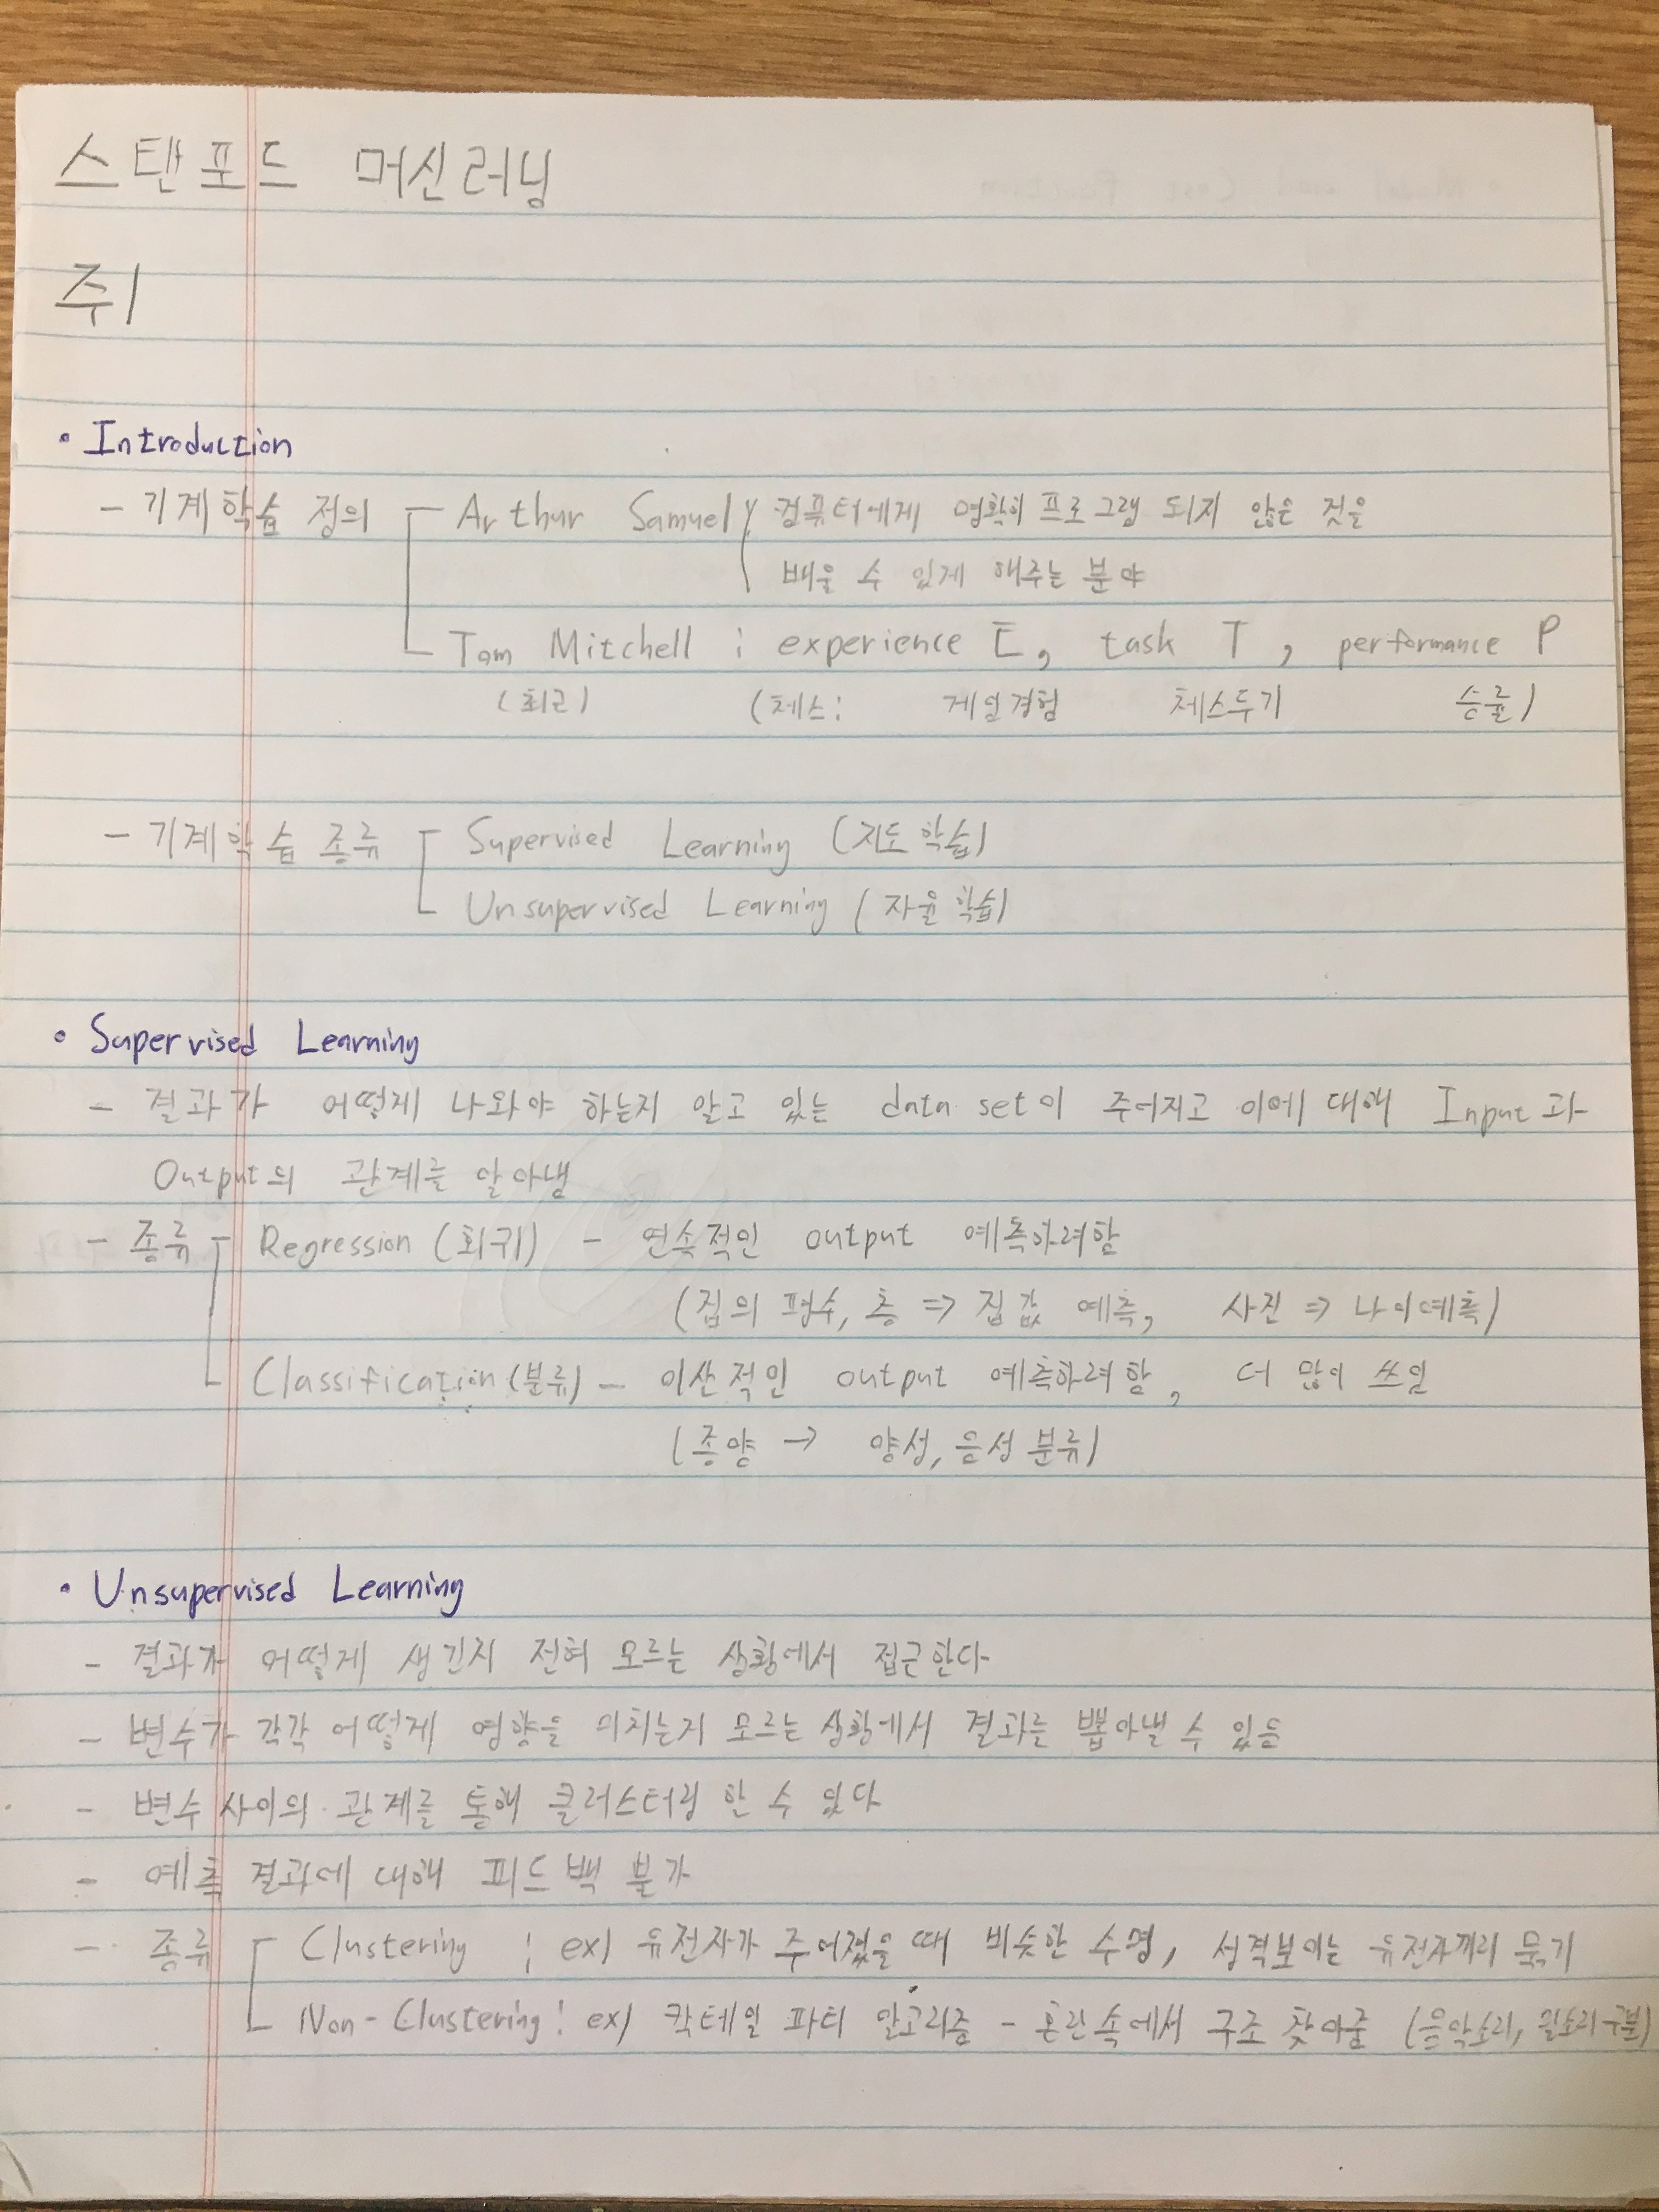 스탠포드 머신러닝
주1
• Introduction
- 기계학습 정의 Arthur Samuel : 컴퓨터에게 명확히 프로그램 되지 않은 것을
배울 수 있게 해주는 분야
Tom Mitchell : experience E, task T, performance P
(최근) (체스: 게임경험 체스두기 승률)
- 기계학습 종류 Supervised Learning (지도학습)
Unsupervised Learning (자율학습)
• Supervised Learning
- 결과가 어떻게 나와야 하는지 알고 있는 data set이 주어지고 이에 대해 Input과
Output의 관계를 알아냄
- 종류 Regression (회귀) - 연속적인 output 예측하려함
(집의 평수, 층 => 집값 예측, 사진 => 나이예측)
Classification (분류) - 이산적인 output 예측하려 함, 더 많이 쓰임
(종양 → 양성, 음성 분류)
• Unsupervised Learning
- 결과가 어떻게 생긴지 전혀 모르는 상황에서 접근한다
- 변수가 각각 어떻게 영향을 미치는지 모르는 상황에서 결과를 뽑아낼 수 있음
- 변수 사이의 관계를 통해 클러스터링 할 수 있다
- 예측 결과에 대해 피드백 불가
- 종류 Clustering : ex) 유전자가 주어졌을 때 비슷한 수명, 성격보이는 유전자끼리 묶기
Non-Clustering : ex) 칵테일 파티 알고리즘 - 혼란 속에서 구조 찾아줌 (음악소리, 구분)